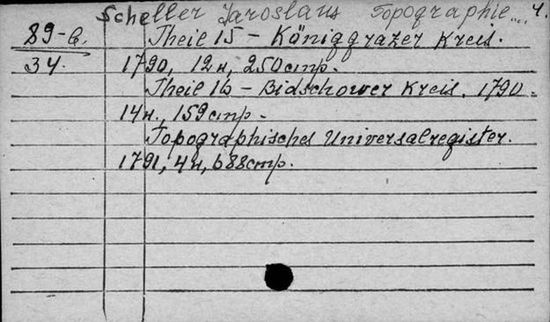 Scheller Jaroslaus Topographie... 4.
89-b. Theil 15 - Königgrazer Kreis.
34. 1790, 12н, 250стр.
Theil 16 - Bidschower Kreis. 1790.
14н., 159стр.
Topographisches Universalregister.
1791, 4н, 688стр.